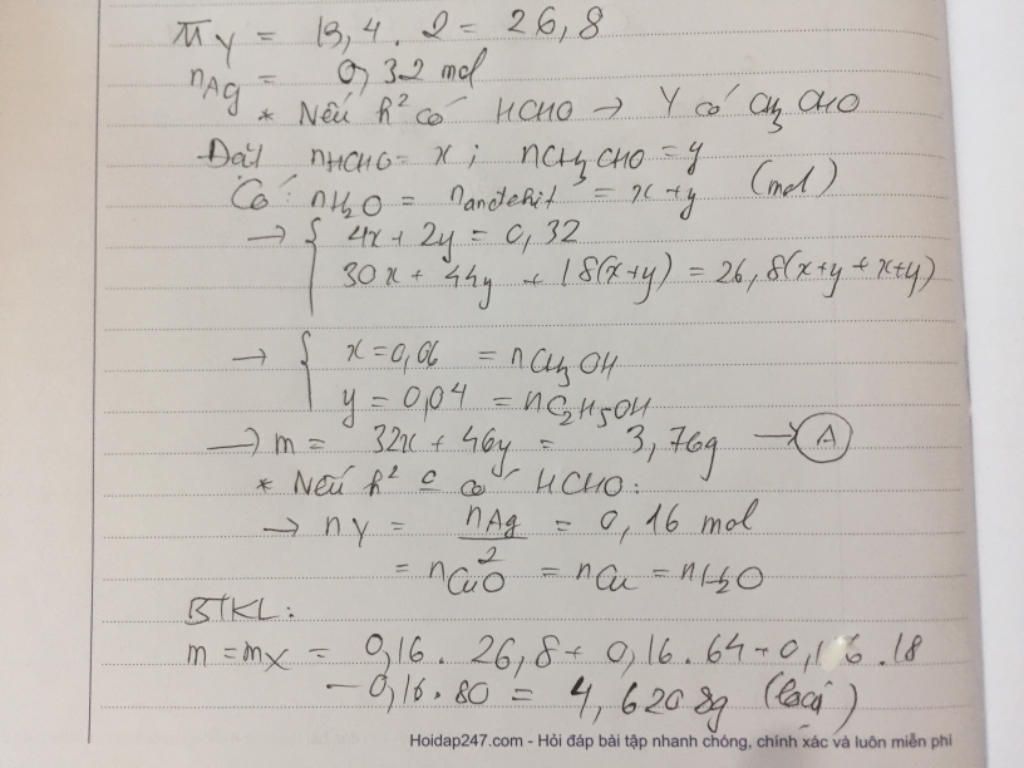 M̄Y = 13,4 . 2 = 26,8
nAg = 0,32 mol
* Nếu h² có HCHO → Y có CH3CHO
Đặt nHCHO = x ; nCH3CHO = y
Có: nH2O = nanđehit = x+y (mol)
→ { 4x + 2y = 0,32
30x + 44y + 18(x+y) = 26,8(x+y+x+y)
→ { x = 0,06 = nCH3OH
y = 0,04 = nC2H5OH
→ m = 32x + 46y = 3,76g → A
* Nếu h² c̲ có HCHO:
→ nY = nAg/2 = 0,16 mol
= nCuO = nCu = nH2O
BTKL:
m = mX = 0,16 . 26,8 + 0,16 . 64 + 0,16 . 18
- 0,16 . 80 = 4,6208g (loại)
Hoidap247.com - Hỏi đáp bài tập nhanh chóng, chính xác và luôn miễn phí